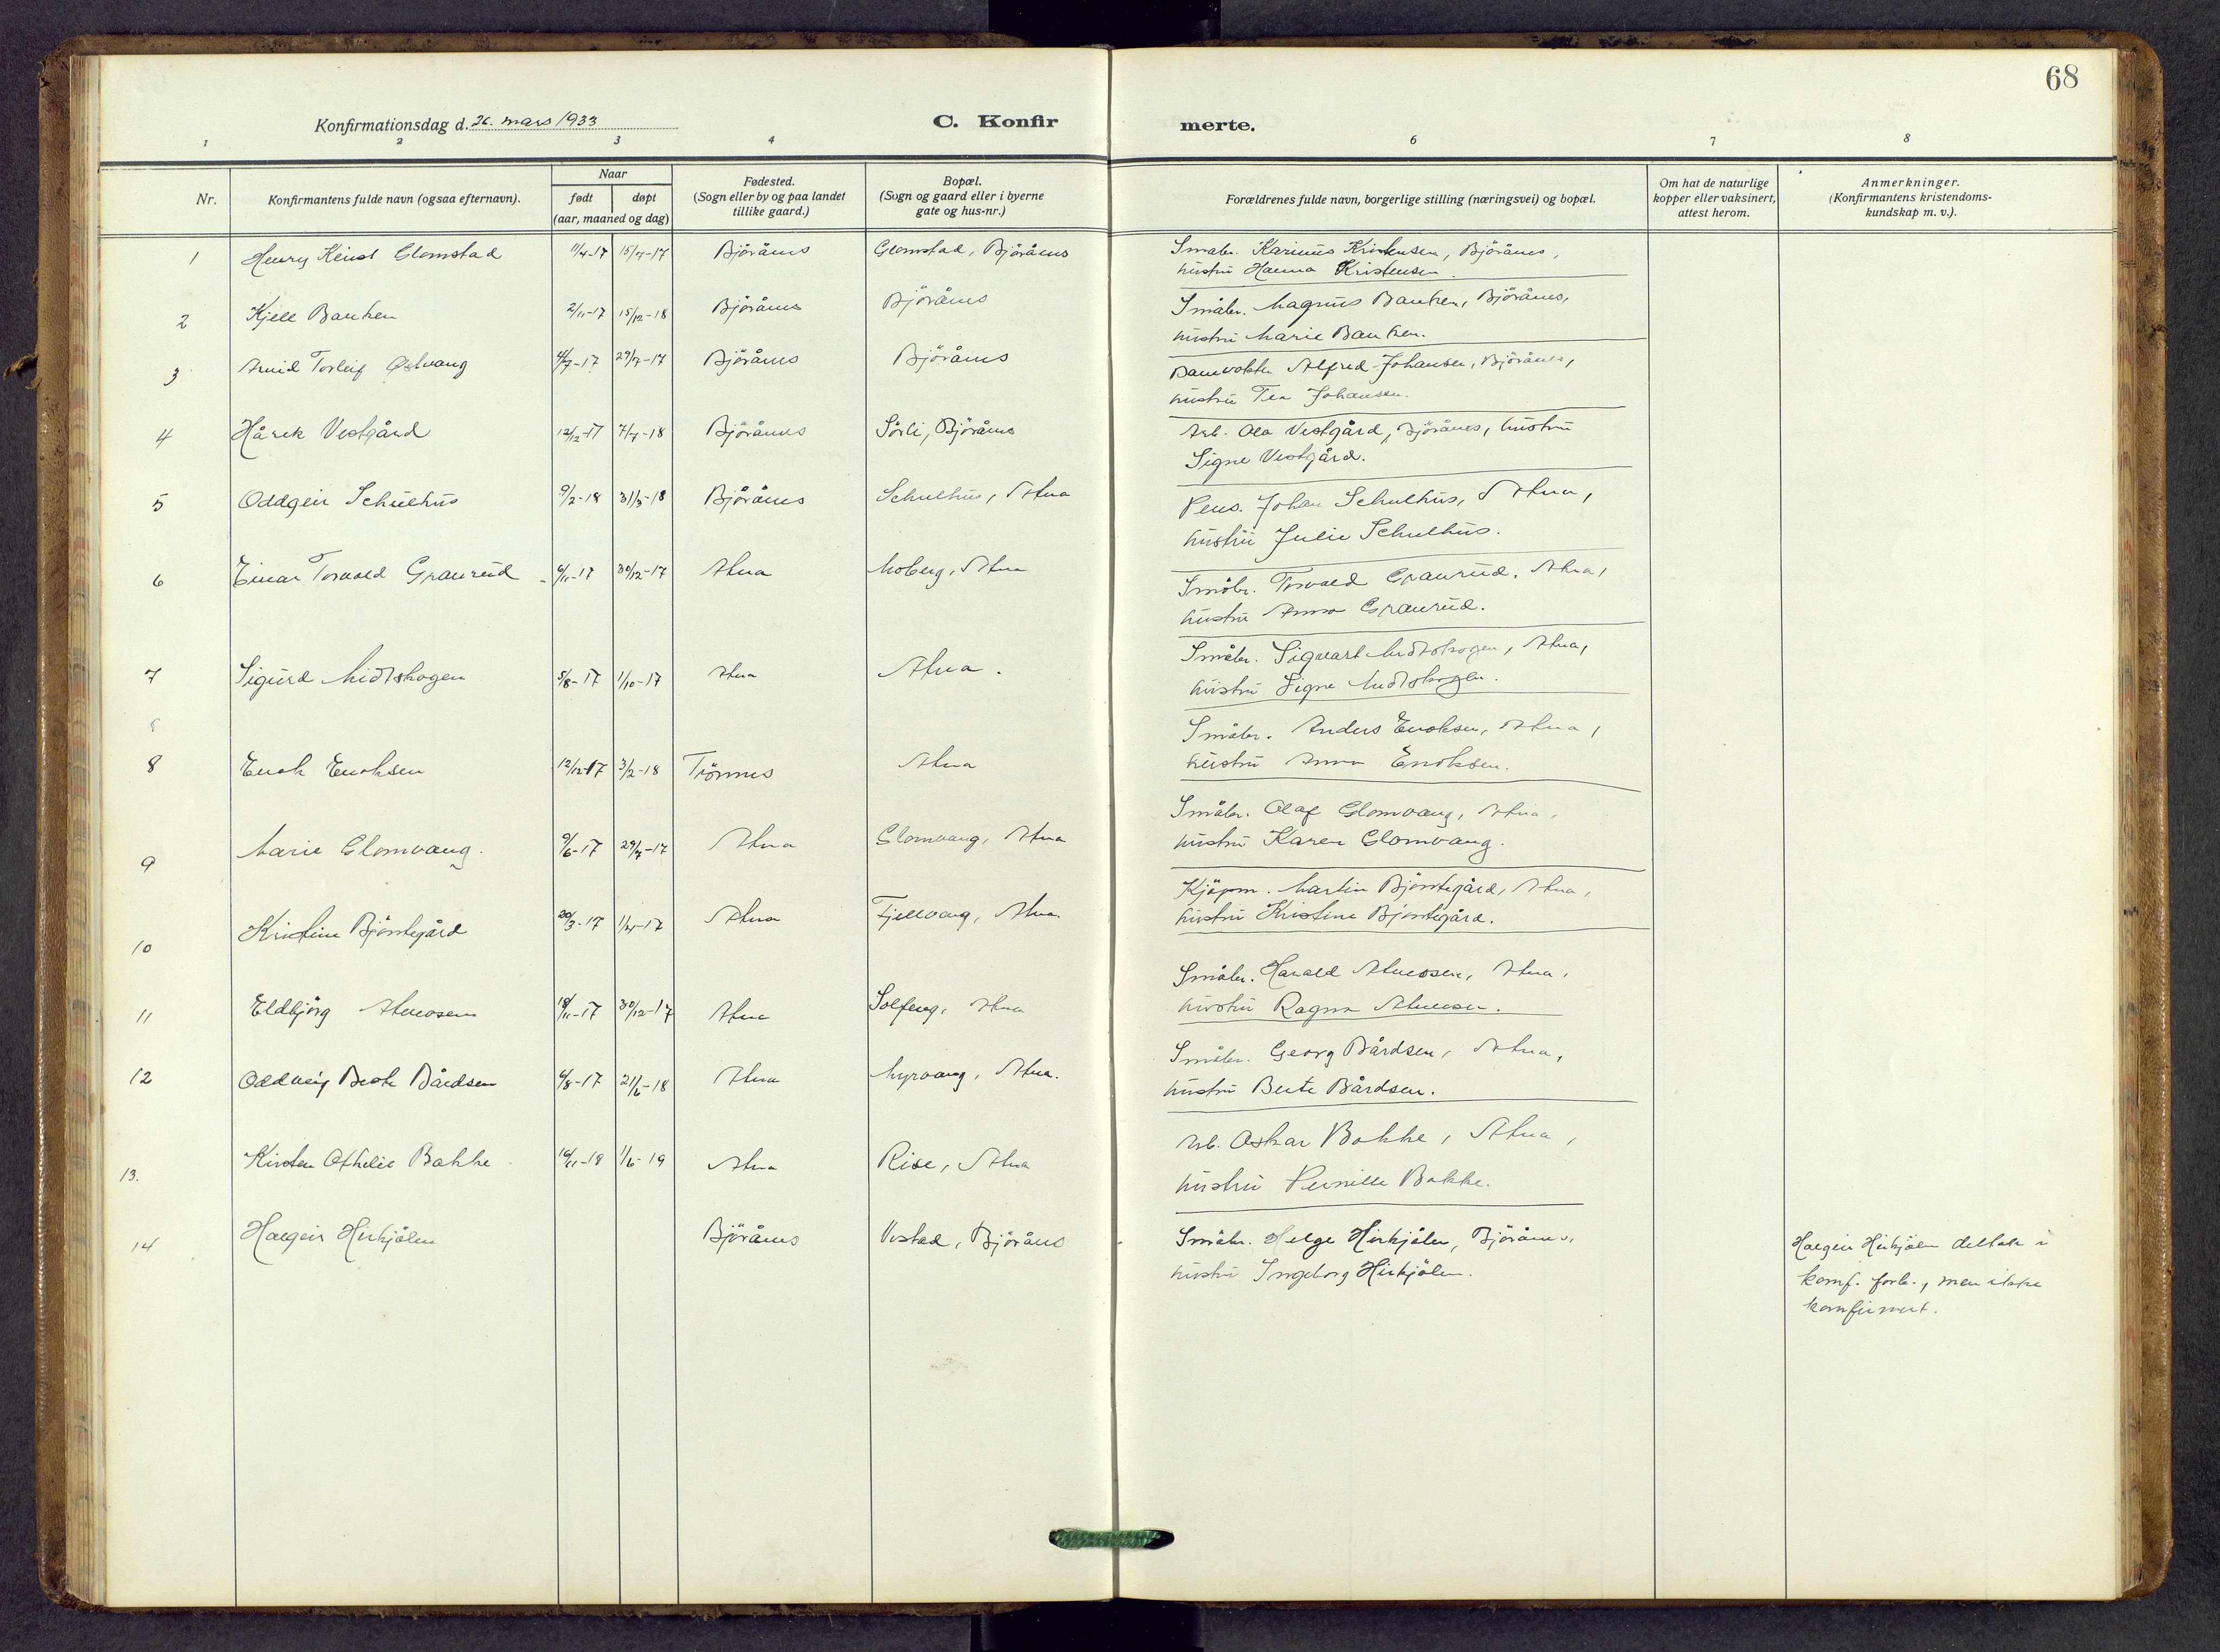 68
Konfirmationsdag d. 26. mars 1933
C. Konfir merte.
1 2 3 4 6 7 8
Nr.
Konfirmantens fulde navn (ogsaa efternavn).
Naar
født døpt
(aar, maaned og dag)
Fødested.
(Sogn eller by og paa landet
tillike gaard.)
Bopæl.
(Sogn og gaard eller i byerne
gate og hus-nr.)
Forældrenes fulde navn, borgerlige stilling (næringsvei) og bopæl.
Om hat de naturlige
kopper eller vaksinert,
attest herom.
Anmerkninger.
(Konfirmantens kristendoms-
kundskap m. v.).
1 Henry Glomstad 11/4-17 15/7-17 Björånes Glomstad, Björånes Småbr. Karinus Kristensen, Björånes,
hustru Hanna Kristensen
2 Kjell Banken 2/11-17 15/12-18 Björånes Björånes Småbr. Magnus Banken, Björånes,
hustru Marie Banken.
3 Arvid Torleif Østvang 29/7-17 Björånes Björånes Banevokter Alfred Johansen, Björånes,
hustru Tea Johansen.
4 Hårek Vestgård 12/12-17 7/7-18 Björånes Sörli, Björånes Arb. Ola Vestgård, Björånes, hustru
Signe Vestgård.
5 Oddgeir Schulhus 9/2-18 31/3-18 Björånes Schulhus, Atna Pens. Johan Schulhus, Atna,
hustru Julie Schulhus.
6 Einar Torvald Granrud 6/11-17 30/12-17 Atna Moberg, Atna Småbr. Torvald Granrud, Atna,
hustru Anna Granrud.
7 Sigurd Midtskogen 5/8-17 1/10-17 Atna Atna. Småbr. Sigvart Midtskogen, Atna,
hustru Signe Midtskogen.
8 Enok Enoksen 12/12-17 3/2-18 Trönnes Atna Småbr. Anders Enoksen, Atna,
hustru Anna Enoksen.
9 Marie Glomvang. 9/6-17 29/7-17 Atna Glomvang, Atna Småbr. Olaf Glomvang, Atna,
hustru Karen Glomvang.
10 Kristine Bjöntegård 20/3-17 1/4-17 Atna Fjellvang, Atna. Kjöpm. Martin Bjöntegård, Atna,
hustru Kristine Bjöntegård.
11 Eldbjörg Atneosen 18/11-17 30/12-17 Atna Solfeng, Atna Småbr. Harald Atneosen, Atna,
hustru Ragna Atneosen.
12 Oddveig Beate Bårdsen 6/8-17 21/6-18 Atna Myrvang, Atna. Småbr. Georg Bårdsen, Atna,
hustru Beate Bårdsen.
13. Kirsten Othelie Bakke 16/11-18 1/6-19 Atna Rise, Atna Arb. Oskar Bakke, Atna,
hustru Pernille Bakke.
14 Halgeir Hirkjölen Björånes Vestad, Björånes Småbr. Helge Hirkjölen, Björånes,
hustru Ingeborg Hirkjölen.
Halgeir Hirkjölen deltok i
konf. forb., men ikke
konfirmert.